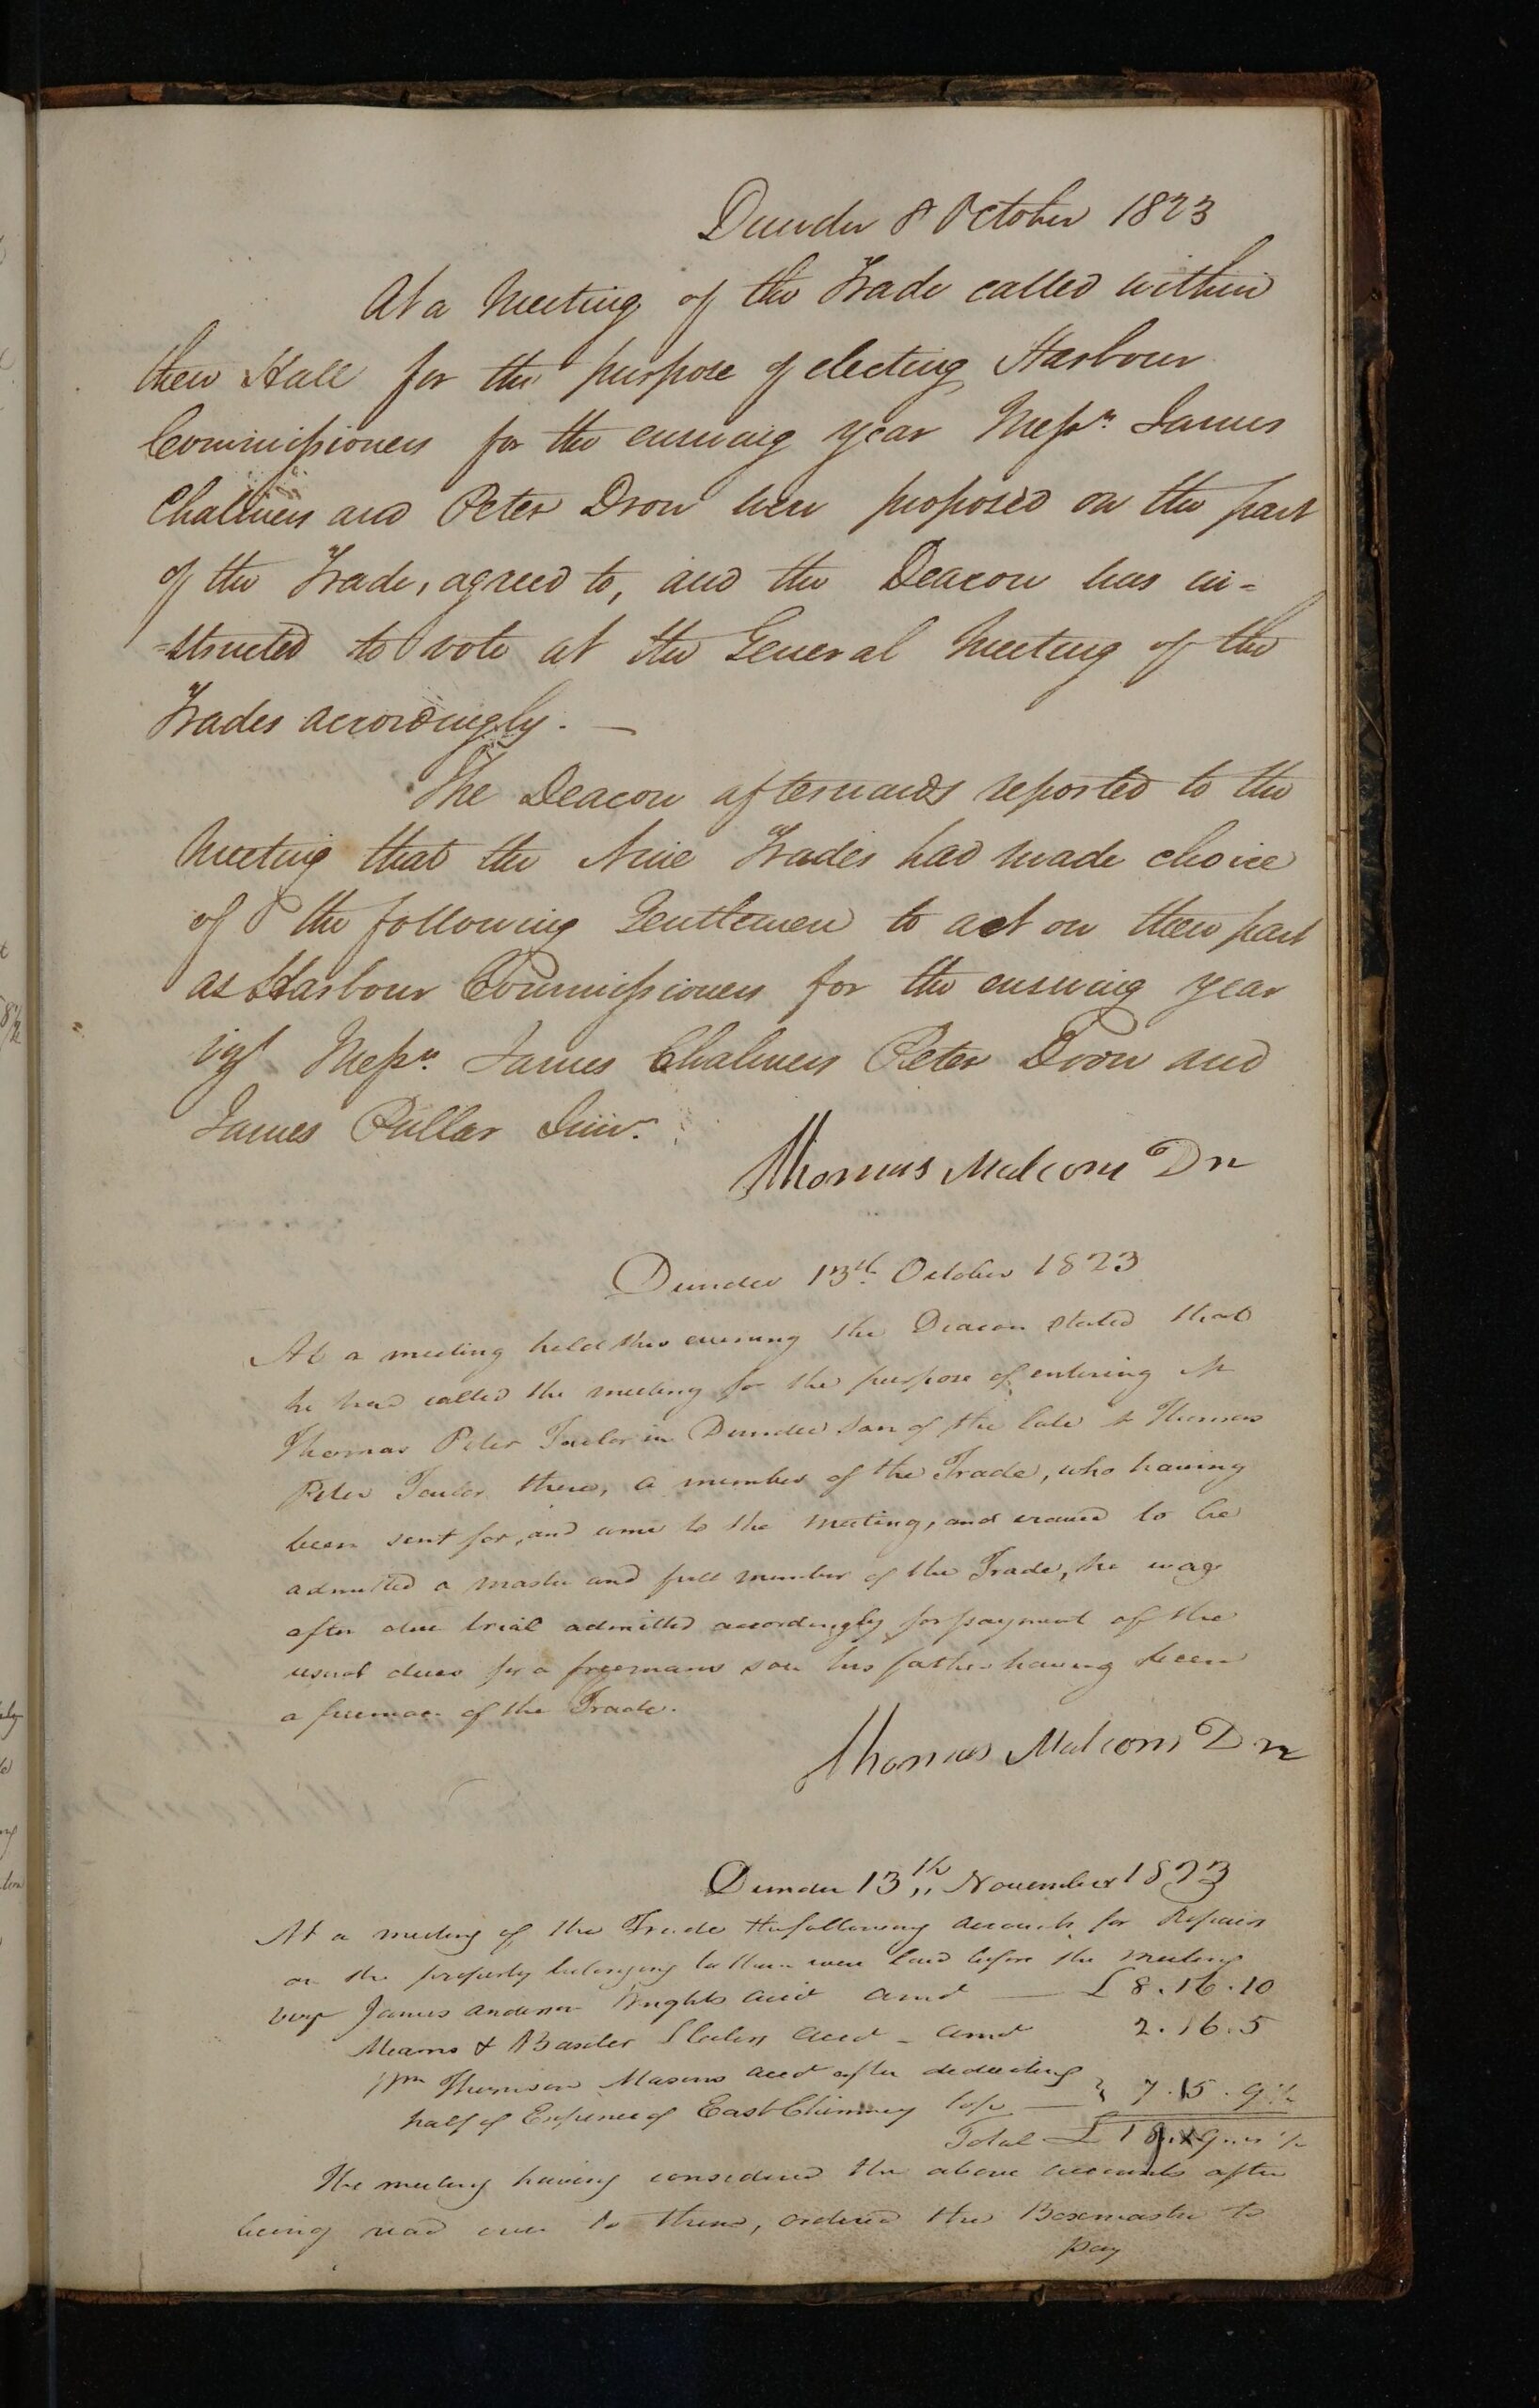 Dundee 8 October 1823
At a Meeting of the Trade called within
their Hall for the purpose of electing Harbour
Commissioners for the ensuing year Messrs. James
Chalmers and Peter Dron were proposed on the part
of the Trade, agreed to, and the Deacon was in=
=structed to vote at the General Meeting of the
Trades accordingly. —
The Deacon afterwards reported to the
Meeting that the Nine Trades had made choice
of the following Gentlemen to act on their part
as Harbour Commissioners for the ensuing year
vizt Messrs. James Chalmers Peter Dron and
James Pullar Junr.
Thomas Malcom Dn
Dundee 13th October 1823
At a meeting held this evening the Deacon stated that
he had called the meeting for the purpose of entering Mr
Thomas Peter Taylor in Dundee Son of the late Thomas
Peter Taylor there, a member of the Trade, who having
been sent for, and come to the meeting, and craved to be
admitted a master and full member of the Trade, he was
after due trial admitted accordingly for payment of the
usual dues for a freemans son his father having been
a freeman of the Trade.
Thomas Malcom Dn
Dundee 13th November 1823
At a meeting of the Trade the following accounts for Repairs
on the property belonging to them were laid before the meeting
vizt James Anderson Wrights acct amt — £ 8.16.10
Mearns & Baxter Slaters acct - amt 2.16.5
Wm Thomson Masons acct after deducting
half of Expences of East Chimney tops — 7.15.9½
Total £
The meeting having considered the above accounts after
being read over to them, ordered the Boxmaster to
pay